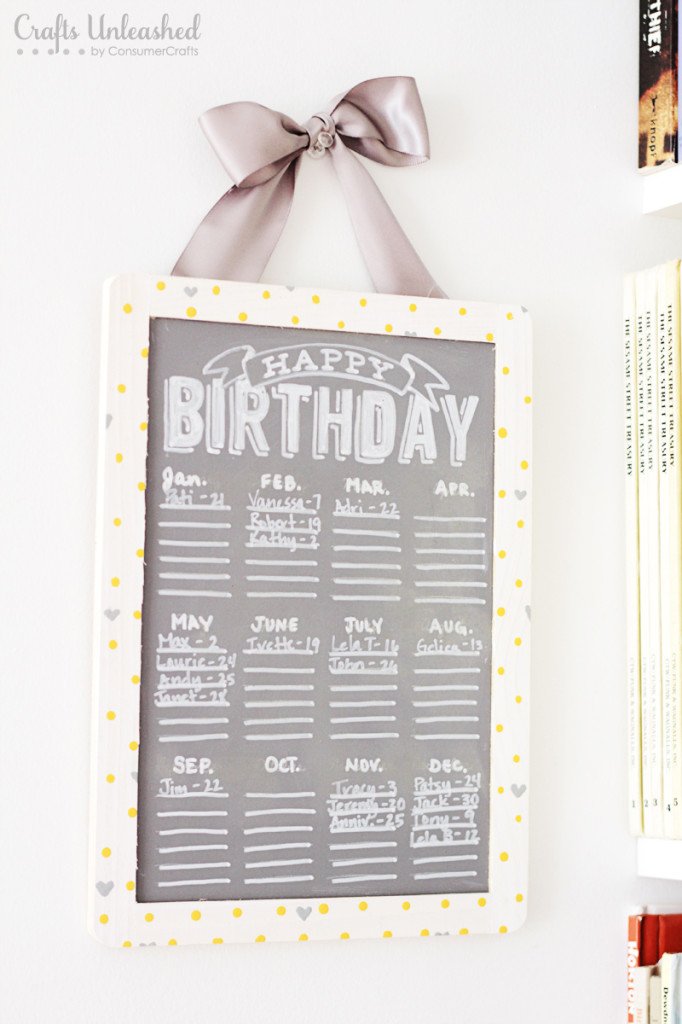 Crafts Unleashed
by ConsumerCrafts
HAPPY
BIRTHDAY
Jan.
Pati - 21
FEB.
Vanessa - 7
Robert - 19
Kathy - 2
MAR.
Adri - 22
APR.
MAY
Max - 2
Laurie - 24
Andy - 25
Janet - 28
JUNE
Ivette - 19
JULY
Lela T - 16
John - 26
AUG.
Gelica - 13
SEP.
Jim - 22
OCT.
NOV.
Tracy - 3
Jeremh - 20
Anniv. - 25
DEC.
Patsy - 24
Jack - 30
Tony - 9
Lela B - 12
THIEF
knopf
THE SESAME STREET TREASURY
THE SESAME STREET TREASURY
THE SESAME STREET TREASURY
THE SESAME STREET TREASURY
1
2
3
4
5
HORTON